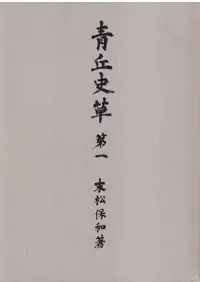 青丘史草
第一
末松保和著